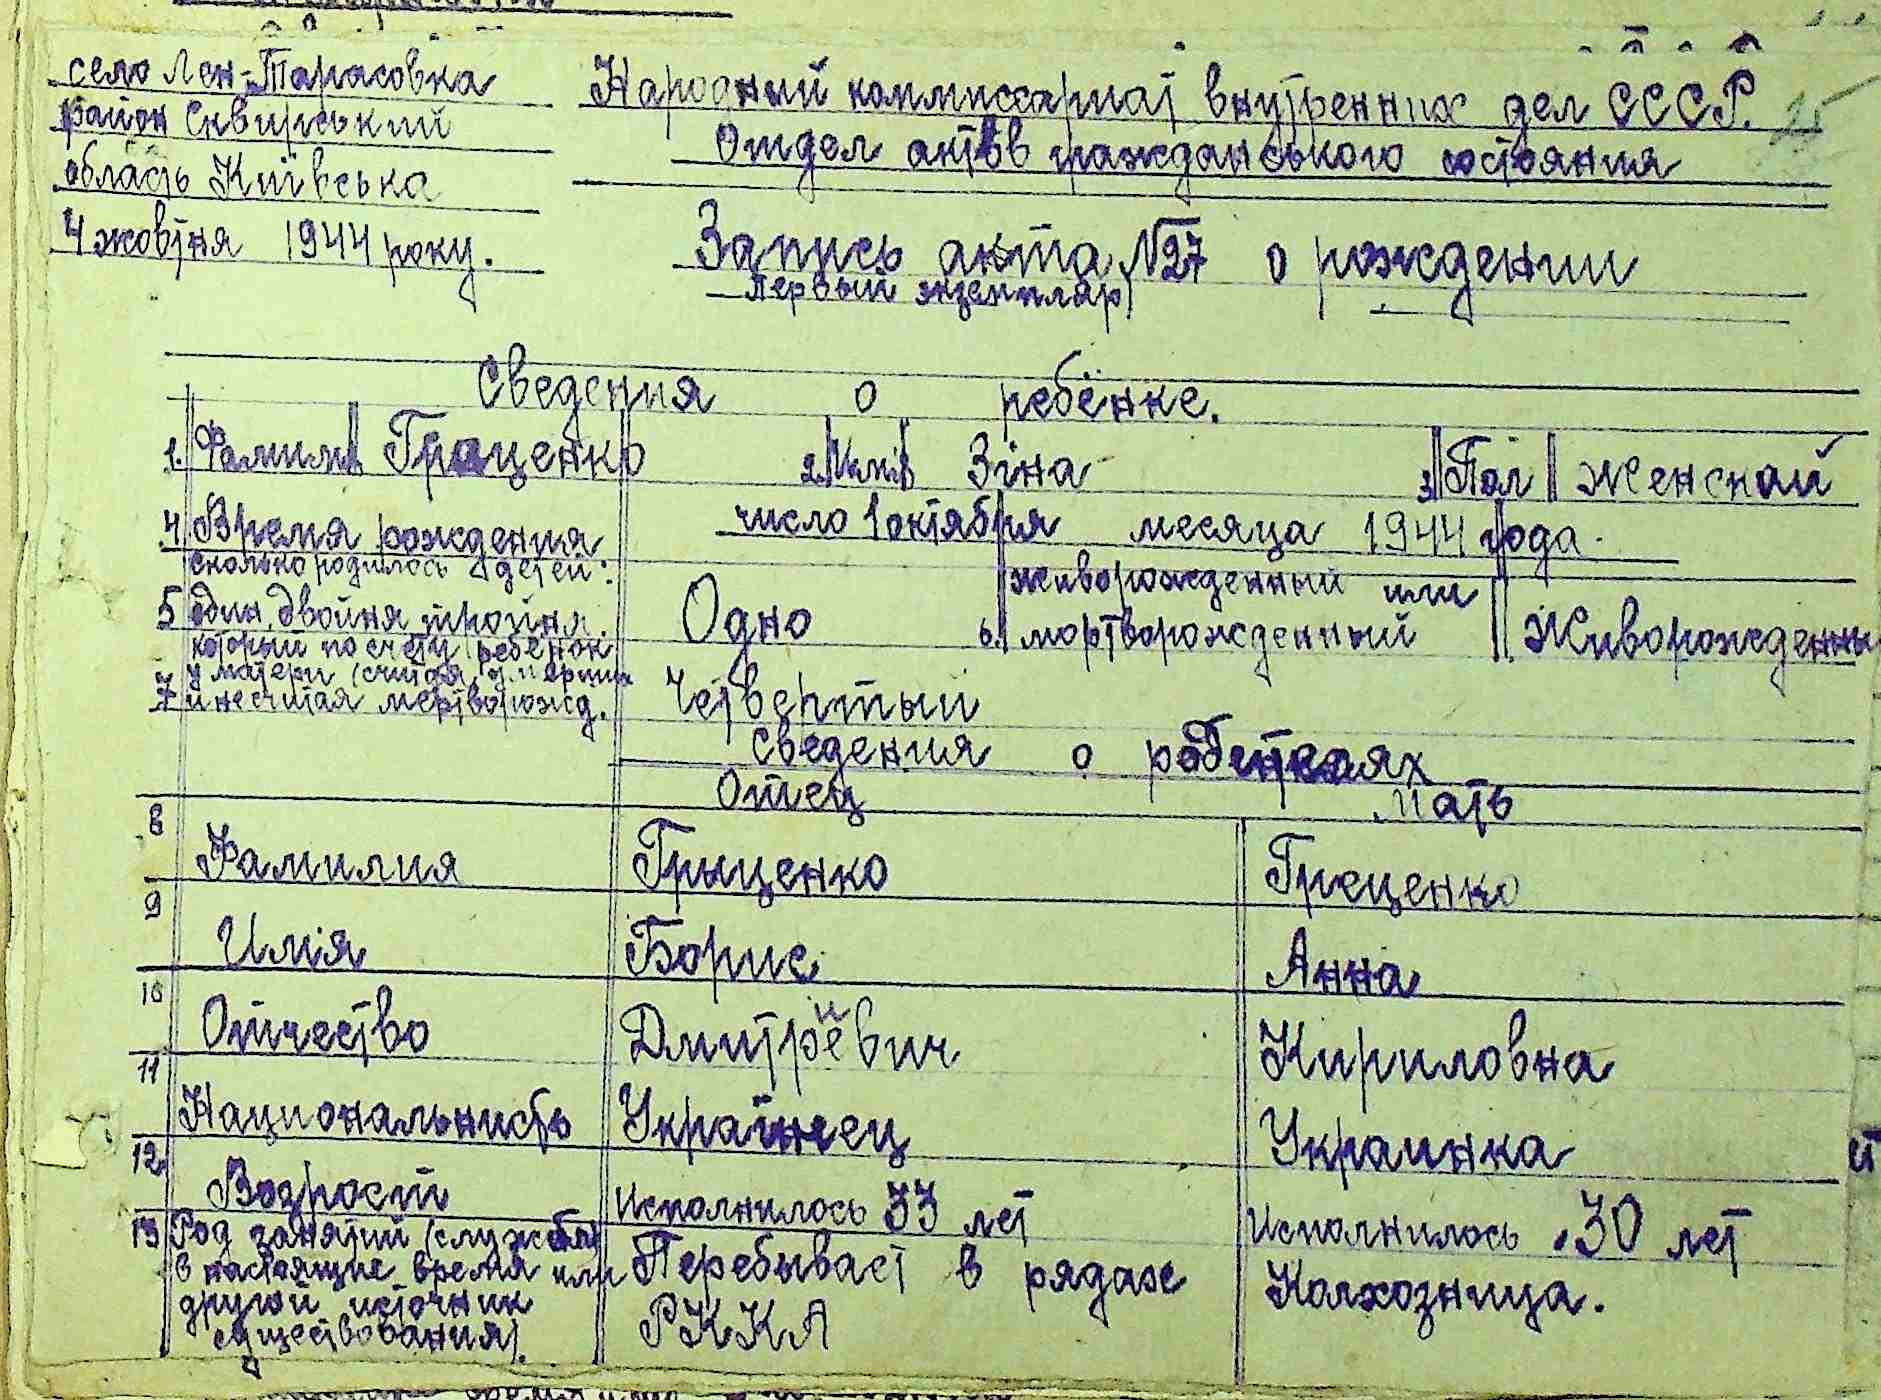 село Лен-Тарасовка
район Сквирський
область Київська
4 жовтня 1944 року.
Народний коммиссариат внутренних дел СССР.
25
Отдел актов гражданського состояния
Запись акта №27 о рождении
Первый экземпляр
Сведения о ребёнке.
1. Фамилия Гращенко 2. Имя Зіна 3 Пол Женской
4 Время рождения число 1 октября месяца 1944 года.
сколько родилось детей:
5 один, двойня, тройня. Одно 6. живорожденный или
мортворожденный Живорожденны
который по счету ребенок
у матери (считая умерших
7 и не считая мертворожд. Четвертый
Сведения о родителях
Отец Мать
8 Фамилия Грыценко Греценко
9 Имія Борис Анна
10 Отчество Дмитриевич Кириловна
11 Национальнисть Украинец Украинка
12 Возрост Исполнилось 33 лет Исполнилось 30 лет
13 Род занятий (служба)
в настоящие время или Перебывает в рядах Колхозница.
другой источник РККА
существования).